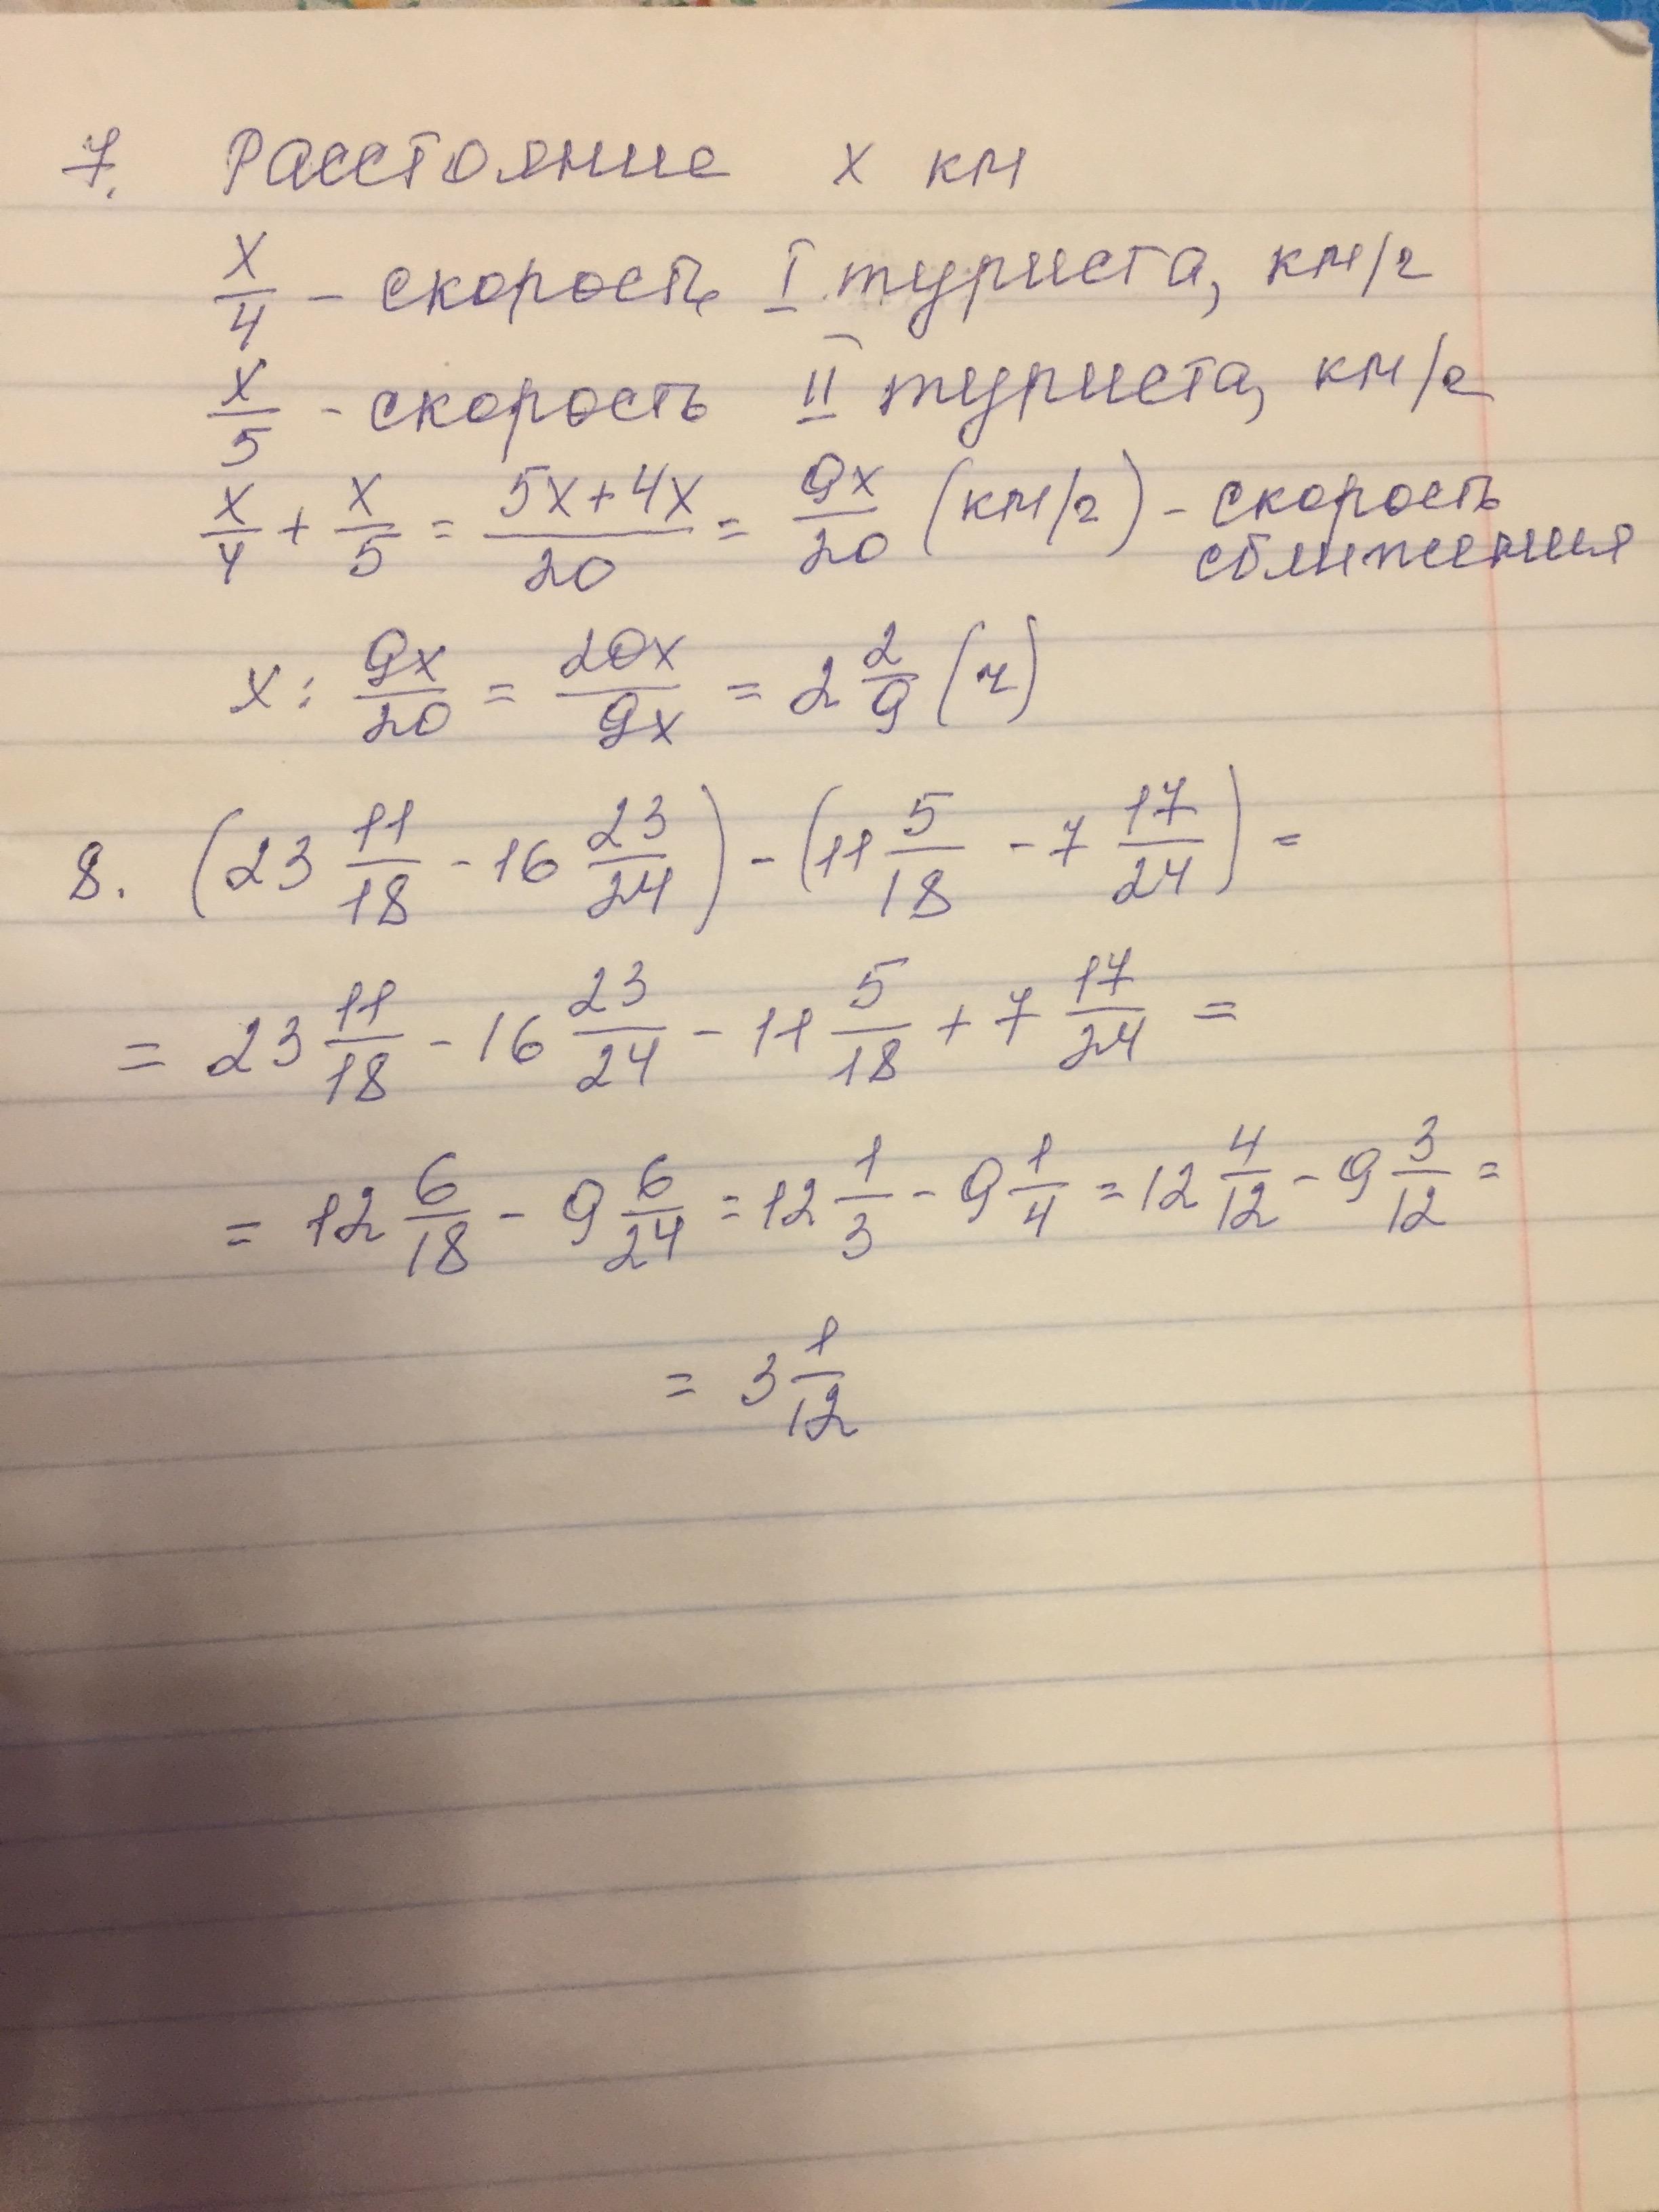 7. Расстояние x км
x/4 - скорость I туриста, км/ч
x/5 - скорость II туриста, км/ч
x/4 + x/5 = (5x+4x)/20 = 9x/20 (км/ч) - скорость
сближения
x : 9x/20 = 20x/9x = 2 2/9 (ч)
8. (23 11/18 - 16 23/24) - (11 5/18 - 7 17/24) =
= 23 11/18 - 16 23/24 - 11 5/18 + 7 17/24 =
= 12 6/18 - 9 6/24 = 12 1/3 - 9 1/4 = 12 4/12 - 9 3/12 =
= 3 1/12